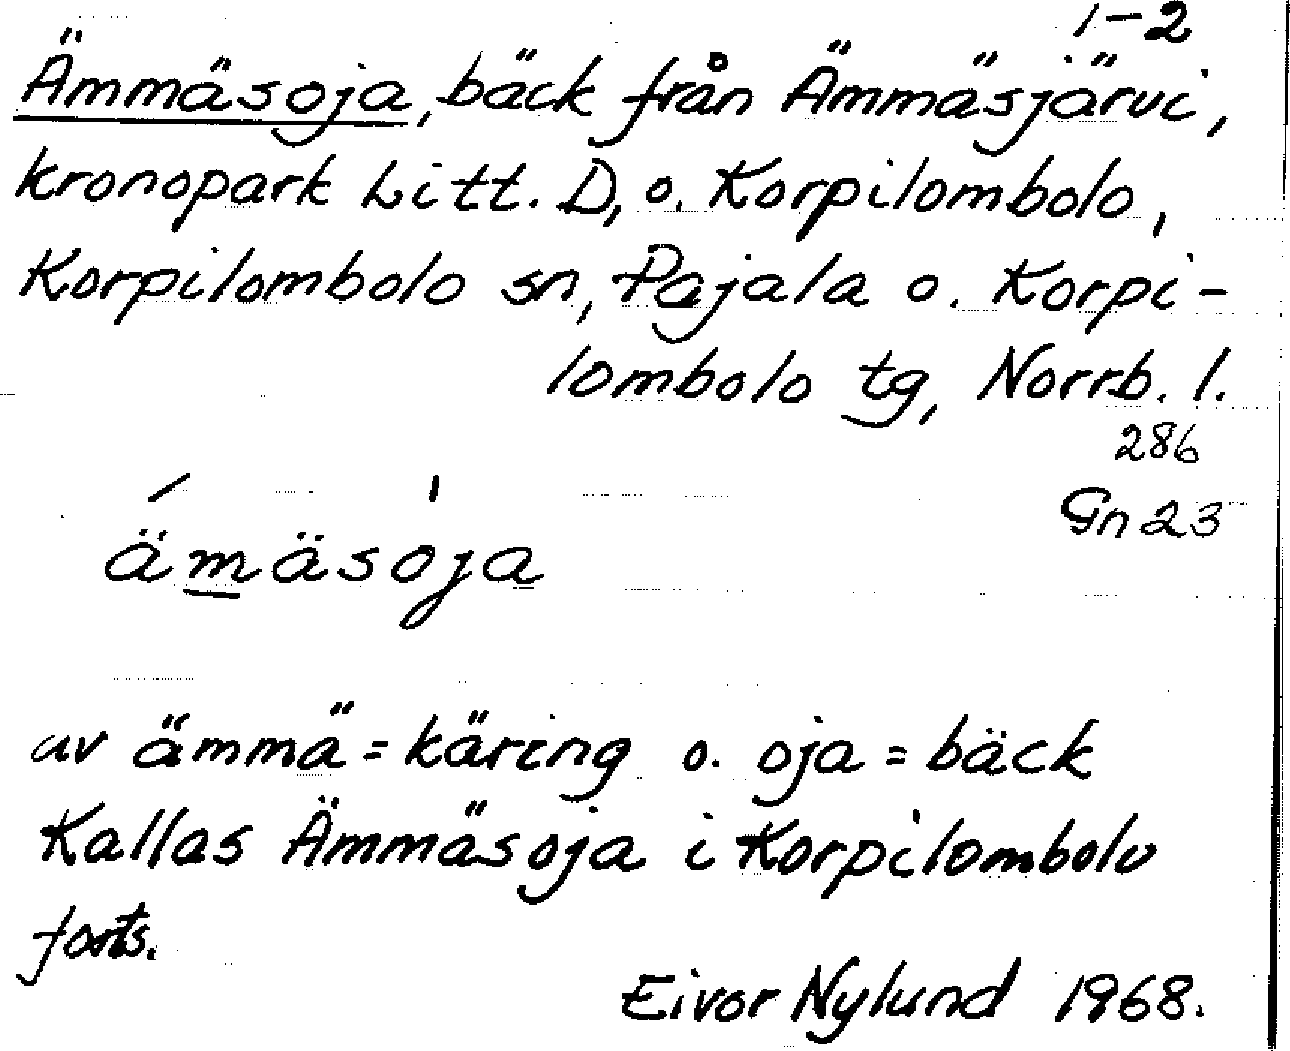 1-2
Ämmäsoja, bäck från Ämmäsjärvi,
kronopark Litt. D, o. Korpilombolo,
Korpilombolo sn, Pajala o. Korpi-
lombolo tg, Norrb. l.
286
Gn 23
ämäsoja
av ämmä = käring o. oja = bäck
Kallas Ämmäsoja i Korpilombolo
forts.
Eivor Nylund 1968.